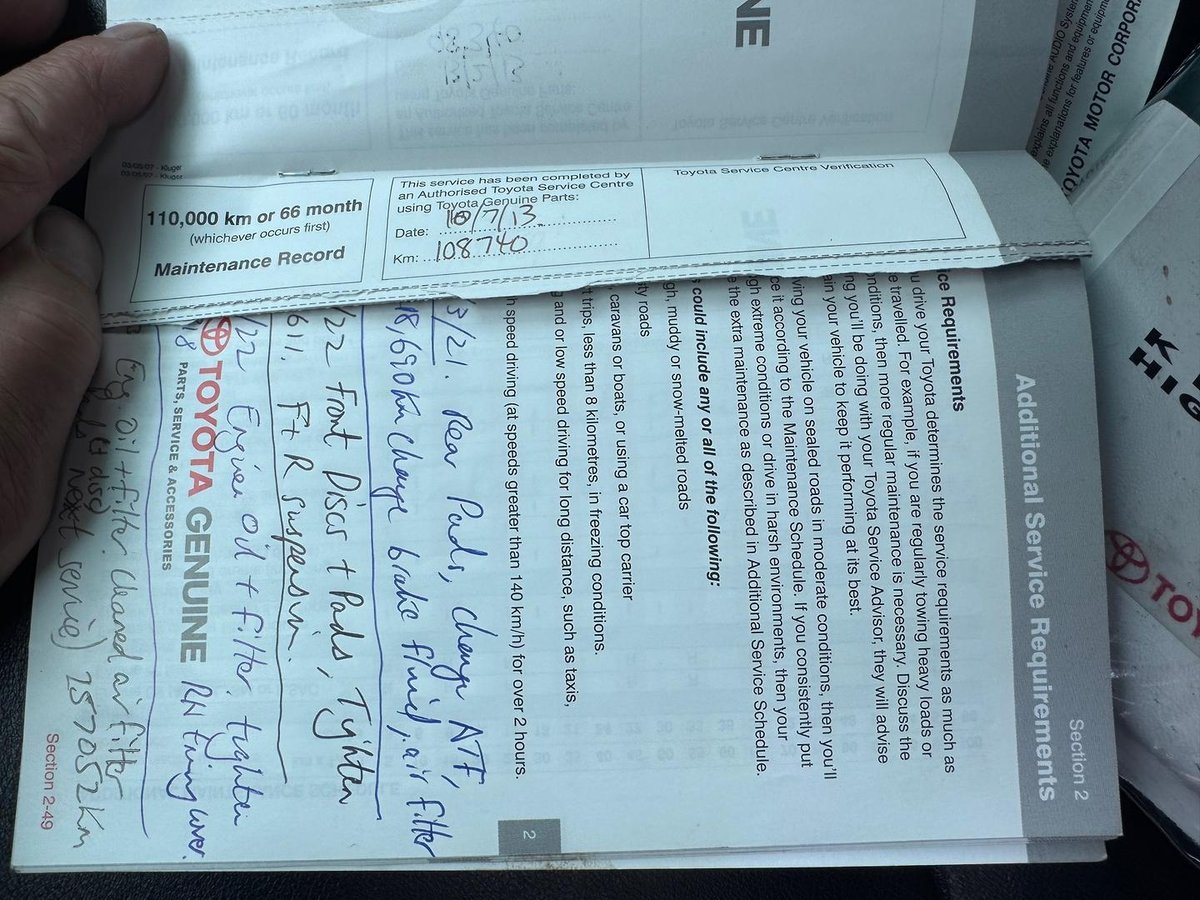 NE
TOYOTA MOTOR CORPOR
03/05/07 - Kluger
03/05/07 - Kluger
110,000 km or 66 month
(whichever occurs first)
Maintenance Record
This service has been completed by
an Authorised Toyota Service Centre
using Toyota Genuine Parts:
Date: 10/7/13
Km: 108740
Toyota Service Centre Verification
Section 2
Additional Service Requirements
ice Requirements
u drive your Toyota determines the service requirements as much as
e travelled. For example, if you are regularly towing heavy loads or
onditions, then more regular maintenance is necessary. Discuss the
ng you'll be doing with your Toyota Service Advisor, they will advise
ain your vehicle to keep it performing at its best.
ving your vehicle on sealed roads in moderate conditions, then you'll
ce it according to the Maintenance Schedule. If you consistently put
gh extreme conditions or drive in harsh environments, then your
e the extra maintenance as described in Additional Service Schedule.
s could include any or all of the following:
gh, muddy or snow-melted roads
ty roads
caravans or boats, or using a car top carrier
t trips, less than 8 kilometres, in freezing conditions.
g and or low speed driving for long distance, such as taxis,
h speed driving (at speeds greater than 140 km/h) for over 2 hours.
2
3/21. Rear Pads, change ATF,
18,690km change brake fluid, air filter
/22 Front Discs + Pads, Tighten
611. F+R suspension.
/22 Engine oil + filter, tighten
RH timing cover.
TOYOTA GENUINE
PARTS, SERVICE & ACCESSORIES
Eng. oil + filter. Cleaned air filter
next service) 257052km
Section 2-49
TOY